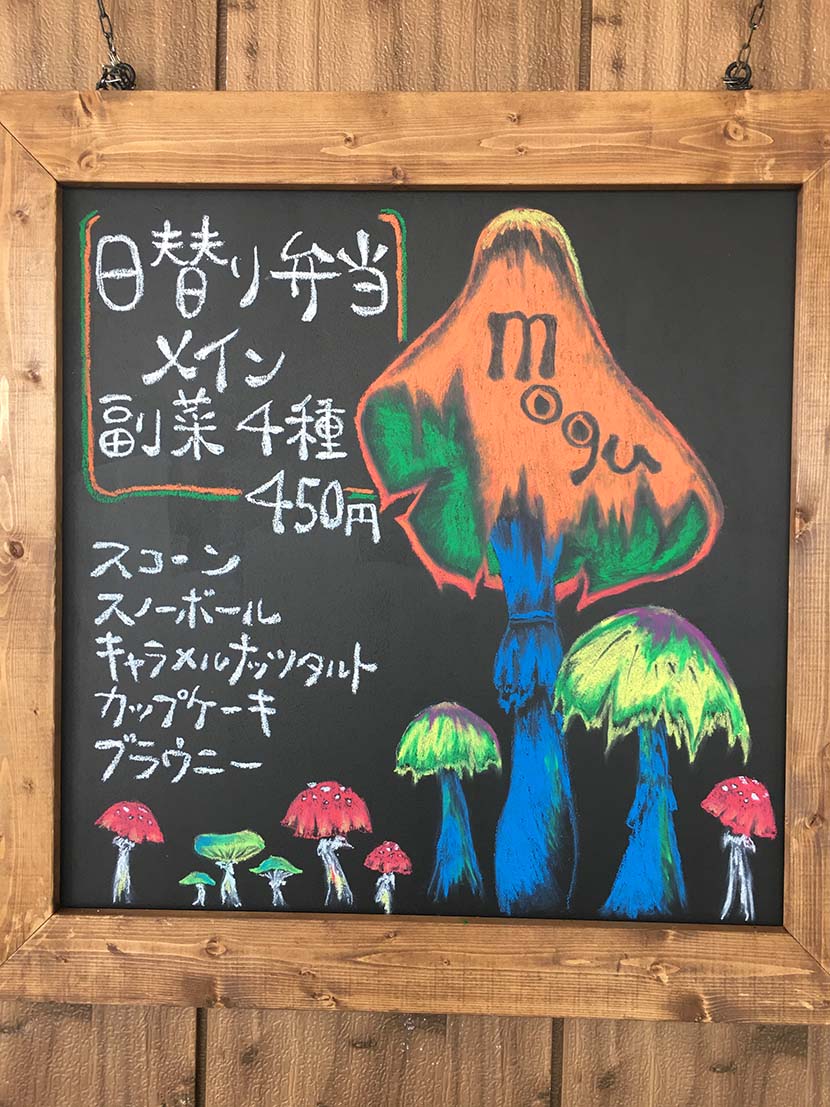 日替り弁当
メイン
副菜 4種
450円
スコーン
スノーボール
キャラメルナッツタルト
カップケーキ
ブラウニー
mogu